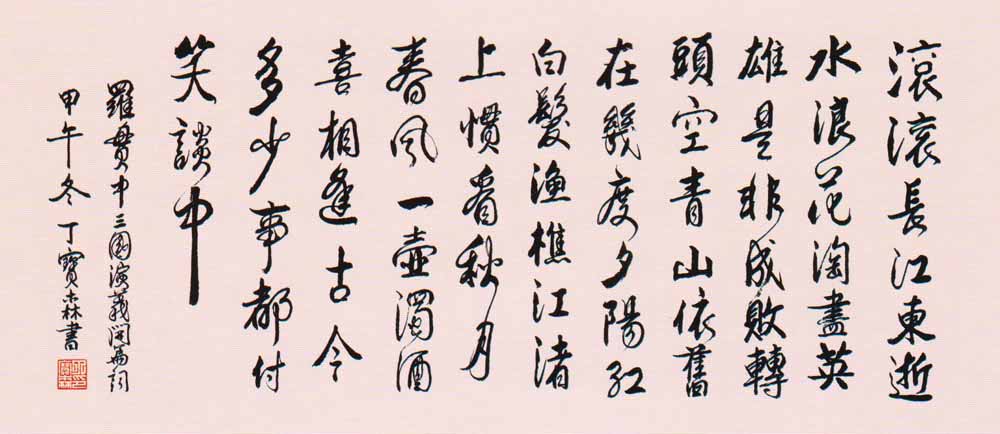 滾滾長江東逝
水浪花淘盡英
雄是非成敗轉
頭空青山依舊
在幾度夕陽紅
白髮漁樵江渚
上慣看秋月
春風一壺濁酒
喜相逢古今
多少事都付
笑談中
羅貫中三國演義開篇詞
甲午冬丁寶森書